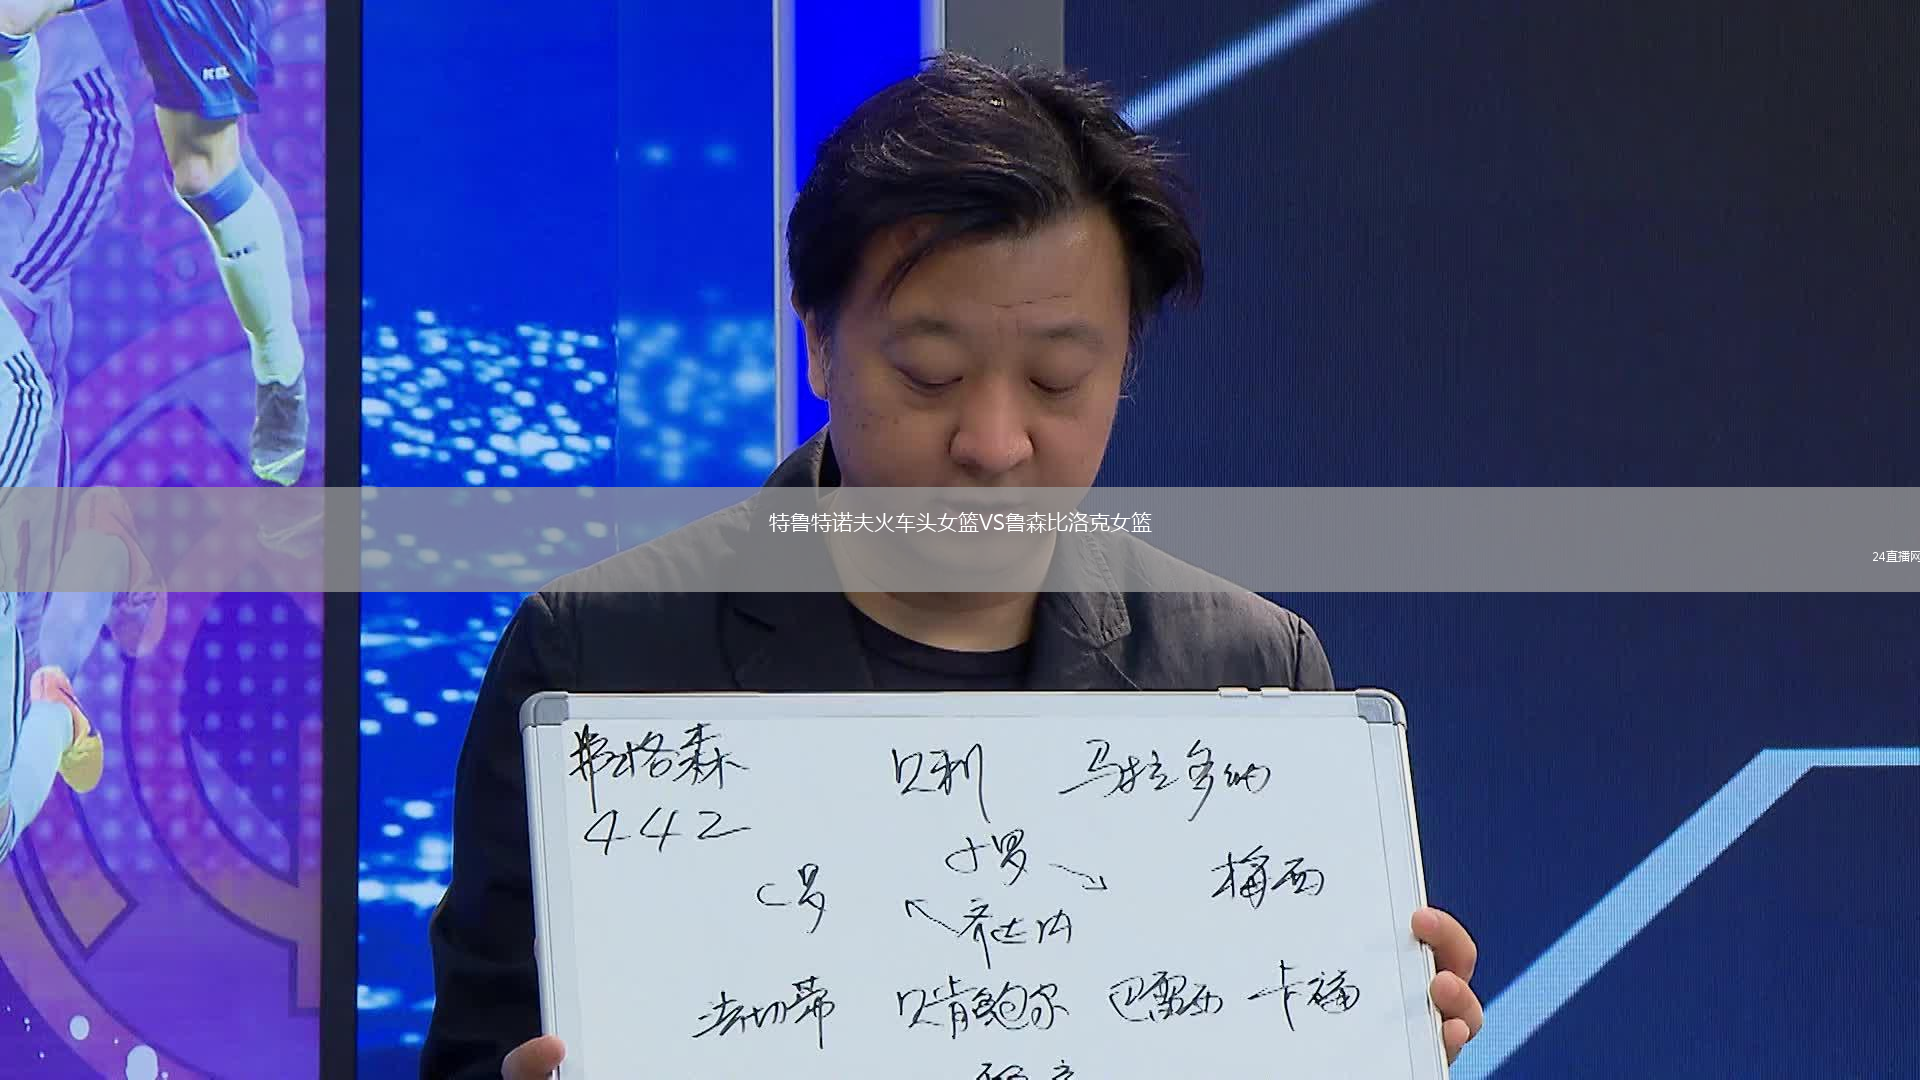 KEL
特鲁特诺夫火车头女篮VS鲁森比洛克女篮
24直播网
弗格森 贝利 马拉多纳
442
小罗
C罗 梅西
齐达内
法切蒂 贝肯鲍尔 巴雷西 卡福